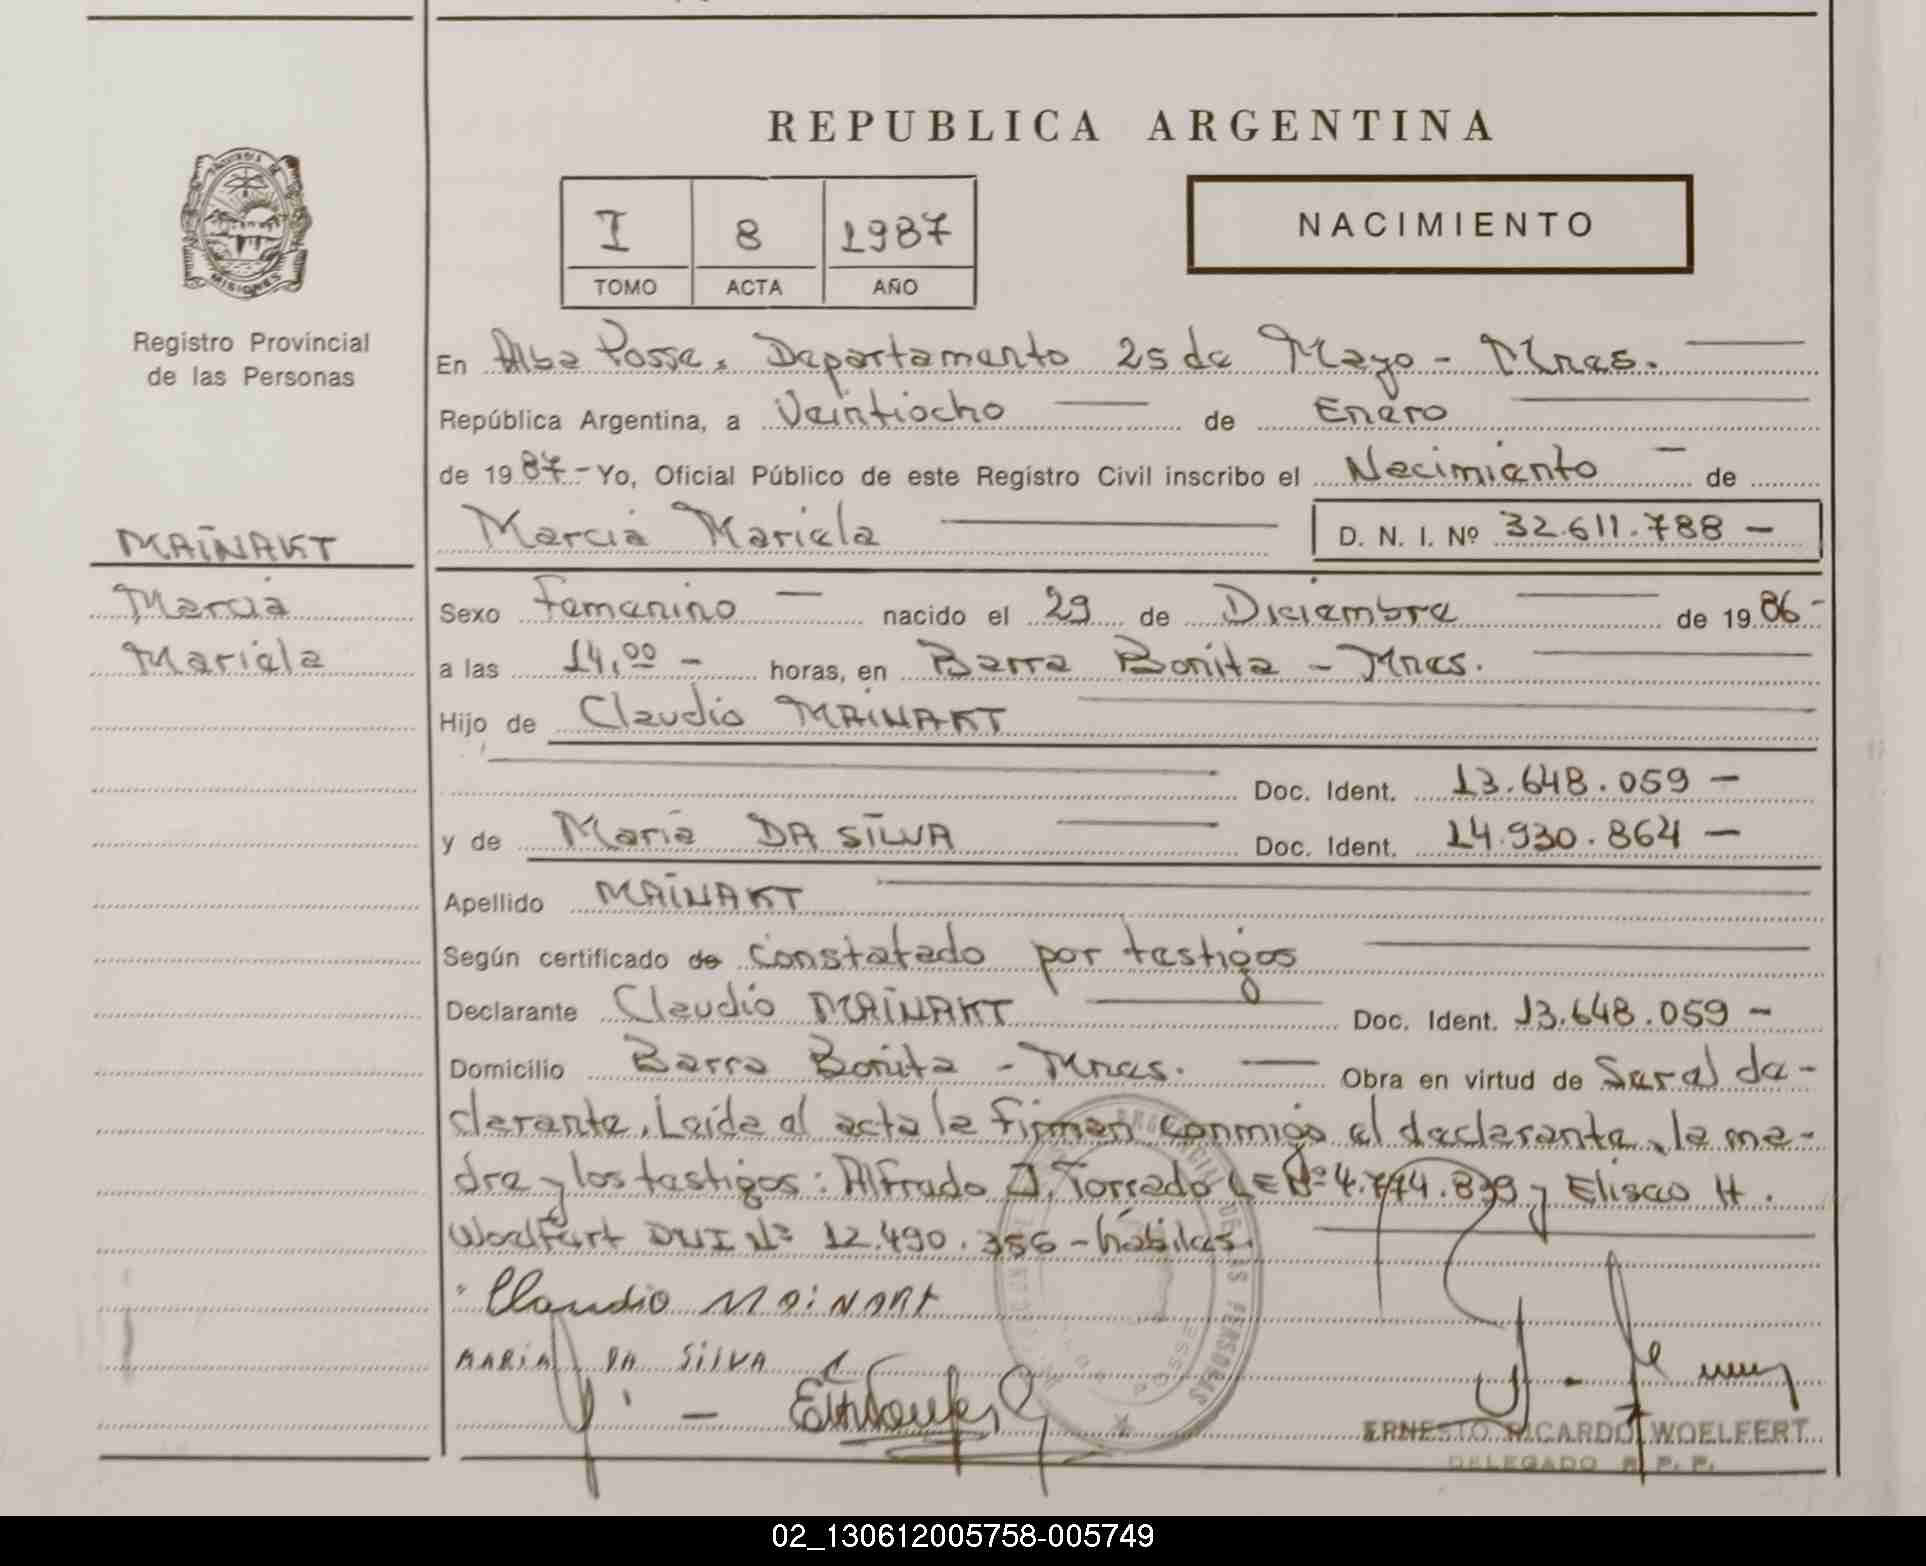 REPUBLICA ARGENTINA
I 8 1987
TOMO ACTA AÑO
NACIMIENTO
PROVINCIA DE
MISIONES
Registro Provincial
de las Personas
MAINAKT
Marcia
Mariela
En Alba Posse, Departamento 25 de Mayo - Mnes.
República Argentina, a Veintiocho de Enero
de 1987- Yo, Oficial Público de este Registro Civil inscribo el Nacimiento de
Marcia Mariela D. N. I. Nº 32.611.788 -
Sexo Femenino nacido el 29 de Diciembre de 1986-
a las 14,00 - horas, en Barra Bonita - Mnes.
Hijo de Claudio MAINAKT
Doc. Ident. 13.648.059 -
y de Maria DA SILVA Doc. Ident. 14.930.864 -
Apellido MAINAKT
Según certificado de Constatado por testigos
Declarante Claudio MAINAKT Doc. Ident. 13.648.059 -
Domicilio Barra Bonita - Mnes. Obra en virtud de Ser el de-
clarante. Leida el acta la firman conmigo el declarante, la ma-
dre y los testigos: Alfredo J. Torrado LE Nº 4.774.839 y Eliseo H.
Woelfert DNI Nº 12.490.356 - hábiles.
Claudio MAiNAKt
MARIA DA SiLVA
ERNESTO RICARDO WOELFERT
DELEGADO R. P. P.
02_130612005758-005749